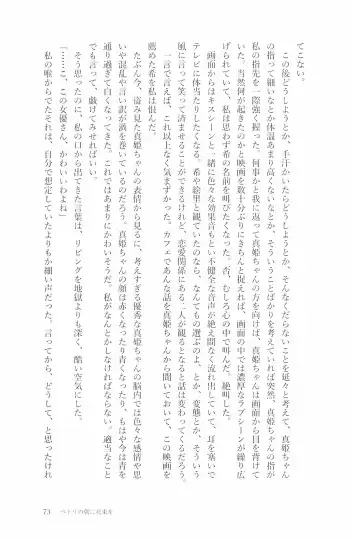 てこない。
　この後どうしようとか、手汗かいたらどうしようとか、そんなくだらないことを延々と考えて、真姫ちゃん
の指って細いなとか体温あまり高くないなとか、そういうことばかりを考えていれば突然、真姫ちゃんの指が
私の指先を一際強く握った。何事かと我に返って真姫ちゃんの方を向けば、真姫ちゃんは画面から目を背けて
いた。当然何が起きたのかと映画を数十分ぶりにきちんと捉えれば、画面の中では濃厚なラブシーンが繰り広
げられていて、私は思わず希の名前を叫びたくなった。否、むしろ心の中で叫んだ。絶叫した。
　画面からはキスシーンと一緒に色々な効果音もとい不健全な音が絶え間なく流れ出していて、耳を塞いで
テレビに体当たりしたくなる。希や絵里と観ていたのなら、なんてもの選ぶのよ、とか、変態とか、そういう
風に言って笑って済ませることができるけれど、恋愛関係にある二人が観るとなると話は変わってくるだろう。
一言で言えば、これ以上なく気まずかった。カフェであんな話を真姫ちゃんから聞いておいて、この映画を
薦めた希を私は恨んだ。
　たぶん今、盗み見た真姫ちゃんの表情から見るに、考えすぎる優秀な真姫ちゃんの脳内では色々な感情や思
いや混乱や言い訳が渦を巻いているのだろう。真姫ちゃんの顔は赤くなったり青くなったり、もはや今は青を
通り過ぎて白くなってきた。これではあまりにかわいそうだ。私がなんとかしなければならない。適当なこと
でも言って、戯けてみせればいい。
　そう思ったのに、私の口から出てきた言葉は、リビングを地獄よりも深く、酷い空気にした。
「……こ、この女優さん、かわいいわよね」
　私の喉からでたそれは、自分で想定していたよりもか細い声だった。言ってから、どうして、と思ったけれ
73　ペトリの朝に花束を